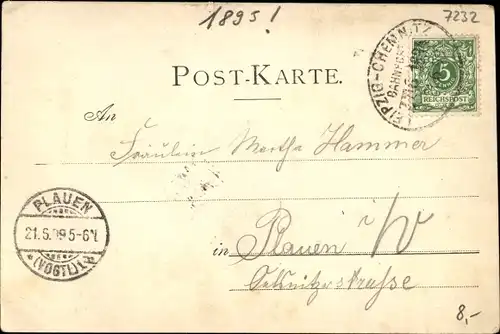 1895!
7232
LEIPZIG-CHEMNITZ
BAHNPOST
5
REICHSPOST
POST-KARTE.
An
Fräulein Martha Hammer
PLAUEN
21.5.99 5-6N.
*(VOGTL)1*
in Plauen i/V
Oelsnitzerstrasse
8,-